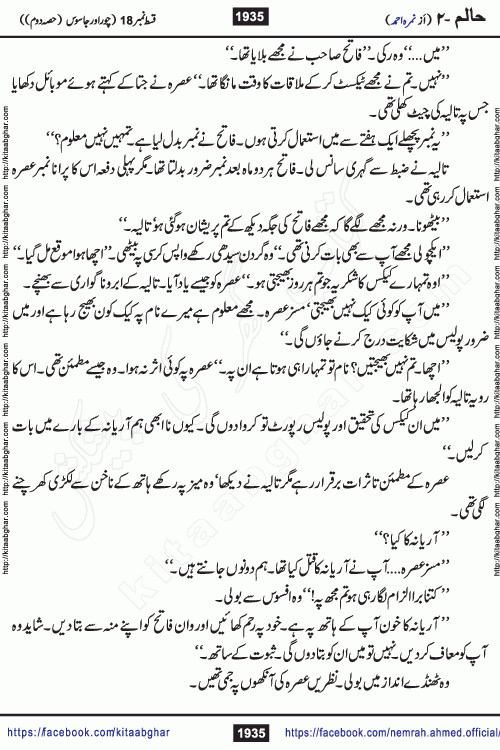 حالم -۲ (از نمره احمد)
1935
قسط نمبر 18 (چور اور جاسوس (حصہ دوم))
’’میں....‘‘ وہ رکی۔ ’’فاتح صاحب نے مجھے بلایا تھا۔‘‘
’’نہیں۔ تم نے مجھے ٹیکسٹ کر کے ملاقات کا وقت مانگا تھا۔‘‘ عصرہ نے جتا کے کہتے ہوئے موبائل دکھایا
جس پہ تالیہ کی چیٹ کھلی تھی۔
’’یہ نمبر پچھلے ایک ہفتے سے میں استعمال کرتی ہوں۔ فاتح نے نمبر بدل لیا ہے۔ تمہیں نہیں معلوم؟‘‘
تالیہ نے ضبط سے گہری سانس لی۔ فاتح ہر دو ماہ بعد نمبر ضرور بدلتا تھا۔ مگر پہلی دفعہ اس کا پرانا نمبر عصرہ
استعمال کر رہی تھی۔
’’بیٹھو نا۔ ورنہ مجھے لگے گا کہ مجھے فاتح کی جگہ دیکھ کے تم پریشان ہو گئی ہو‘ تالیہ۔‘‘
’’ایکچولی مجھے آپ سے بھی بات کرنی تھی۔‘‘ وہ گردن سیدھی رکھے واپس کرسی پہ بیٹھی۔ ’’اچھا ہوا موقع مل گیا۔‘‘
’’اوہ تمہارے کیکس کا شکریہ جو تم ہر روز بھیجتی ہو۔‘‘ عصرہ کو جیسے یاد آیا۔ تالیہ کے ابرو ناگواری سے بھنچے۔
’’میں آپ کو کوئی کیک نہیں بھیجتی‘ مسز عصرہ۔ مجھے معلوم ہے میرے نام پہ کیک کون بھیج رہا ہے اور میں
ضرور پولیس میں شکایت درج کرنے جاؤں گی۔‘‘
’’اچھا۔ تم نہیں بھیجتیں؟ نام تو تمہارا ہی ہوتا ہے ان پہ۔‘‘ عصرہ پہ کوئی اثر نہ ہوا۔ وہ جیسے مطمئن تھی۔ اس کا
رویہ تالیہ کو الجھا رہا تھا۔
’’میں ان کیکس کی تحقیق اور پولیس رپورٹ تو کروا دوں گی۔ کیوں نا ابھی ہم آریانہ کے بارے میں بات
کر لیں۔‘‘
عصرہ کے مطمئن تاثرات برقرار رہے مگر تالیہ نے دیکھا‘ وہ میز پہ رکھے ہاتھ کے ناخن سے لکڑی کھرچنے
لگی تھی۔
’’آریانہ کا کیا؟‘‘
’’مسز عصرہ.... آپ نے آریانہ کا قتل کیا تھا۔ ہم دونوں جانتے ہیں۔‘‘
’’کتنا برا الزام لگا رہی ہو تم مجھ پہ!‘‘ وہ افسوس سے بولی۔
’’آریانہ کا خون آپ کے ہاتھ پہ ہے۔ خود پہ رحم کھائیں اور وان فاتح کو اپنے منہ سے بتا دیں۔ شاید وہ
آپ کو معاف کر دیں۔ نہیں تو میں ان کو بتا دوں گی۔ ثبوت کے ساتھ۔‘‘
وہ ٹھنڈے انداز میں بولی۔ نظریں عصرہ کی آنکھوں پہ جمی تھیں۔
https://facebook.com/kitaabghar
1935
https://facebook.com/nemrah.ahmed.official/
http://kitaabghar.com
http://kitaabghar.com
kitaabghar.com